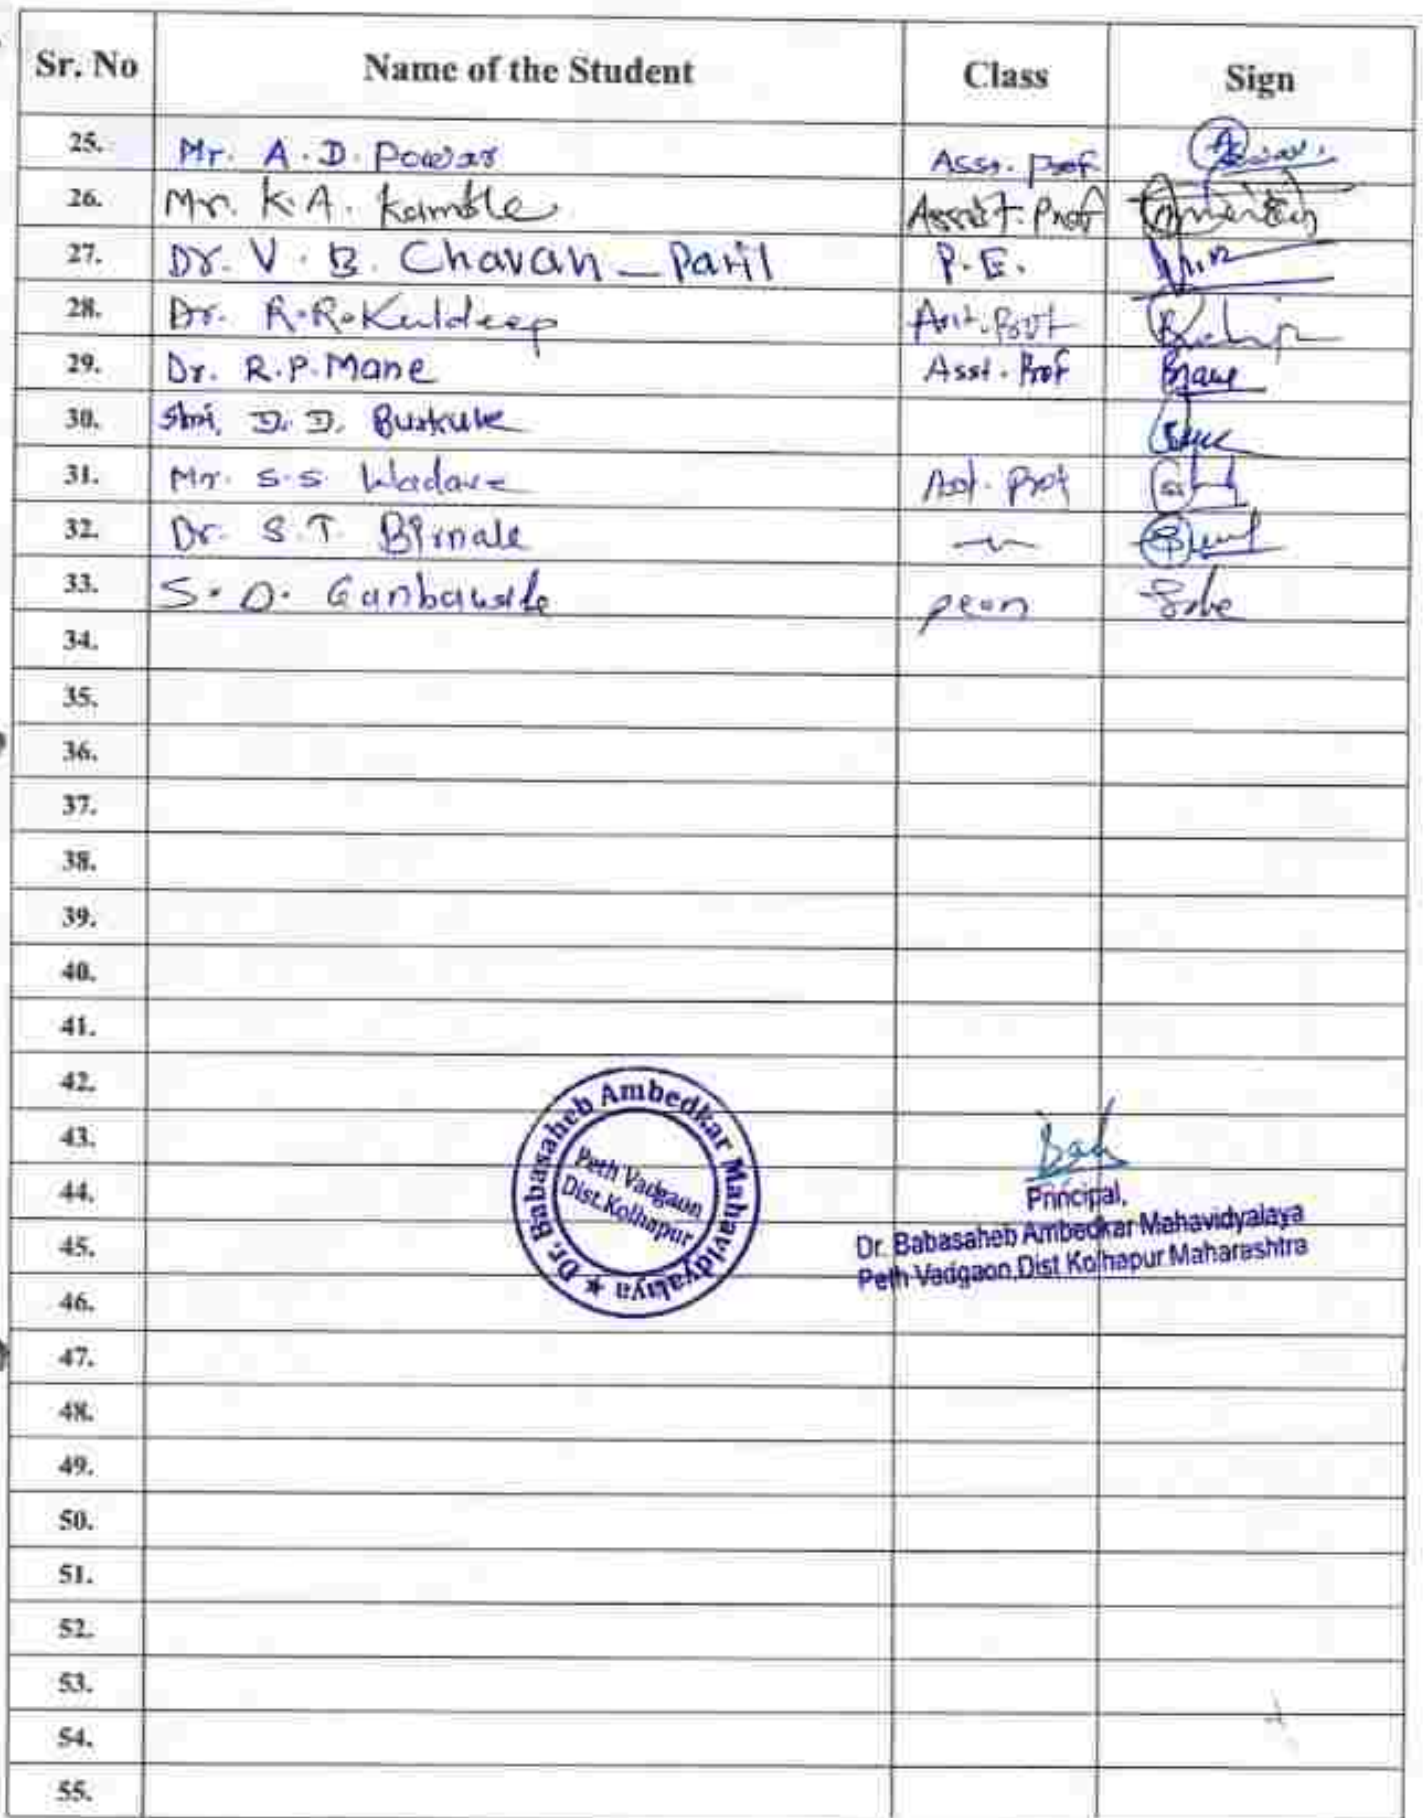 Sr. No Name of the Student Class Sign
25. Mr. A.D. Powar Asst. Prof
26. Mr. K.A. Kamble Assist. Prof
27. Dr. V. B. Chavan_Patil P.E.
28. Dr. R.R.Kuldeep Asst. Prof
29. Dr. R.P.Mane Asst. Prof Bmane
30. Shri. D. D. Burkule
31. Mr. S.S. Wadare Asst. Prof
32. Dr. S.T. Birnale
33. S. D. peon
34.
35.
36.
37.
38.
39.
40.
41.
42.
43.
44.
45.
46.
47.
48.
49.
50.
51.
52.
53.
54.
55.
Dr. Babasaheb Ambedkar Mahavidyalaya ★
Peth Vadgaon
Dist.Kolhapur
Principal,
Dr. Babasaheb Ambedkar Mahavidyalaya
Peth Vadgaon,Dist Kolhapur Maharashtra